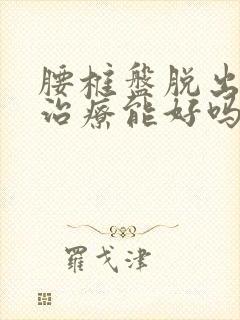 腰椎盤脱出
治療能好吗
羅戈津